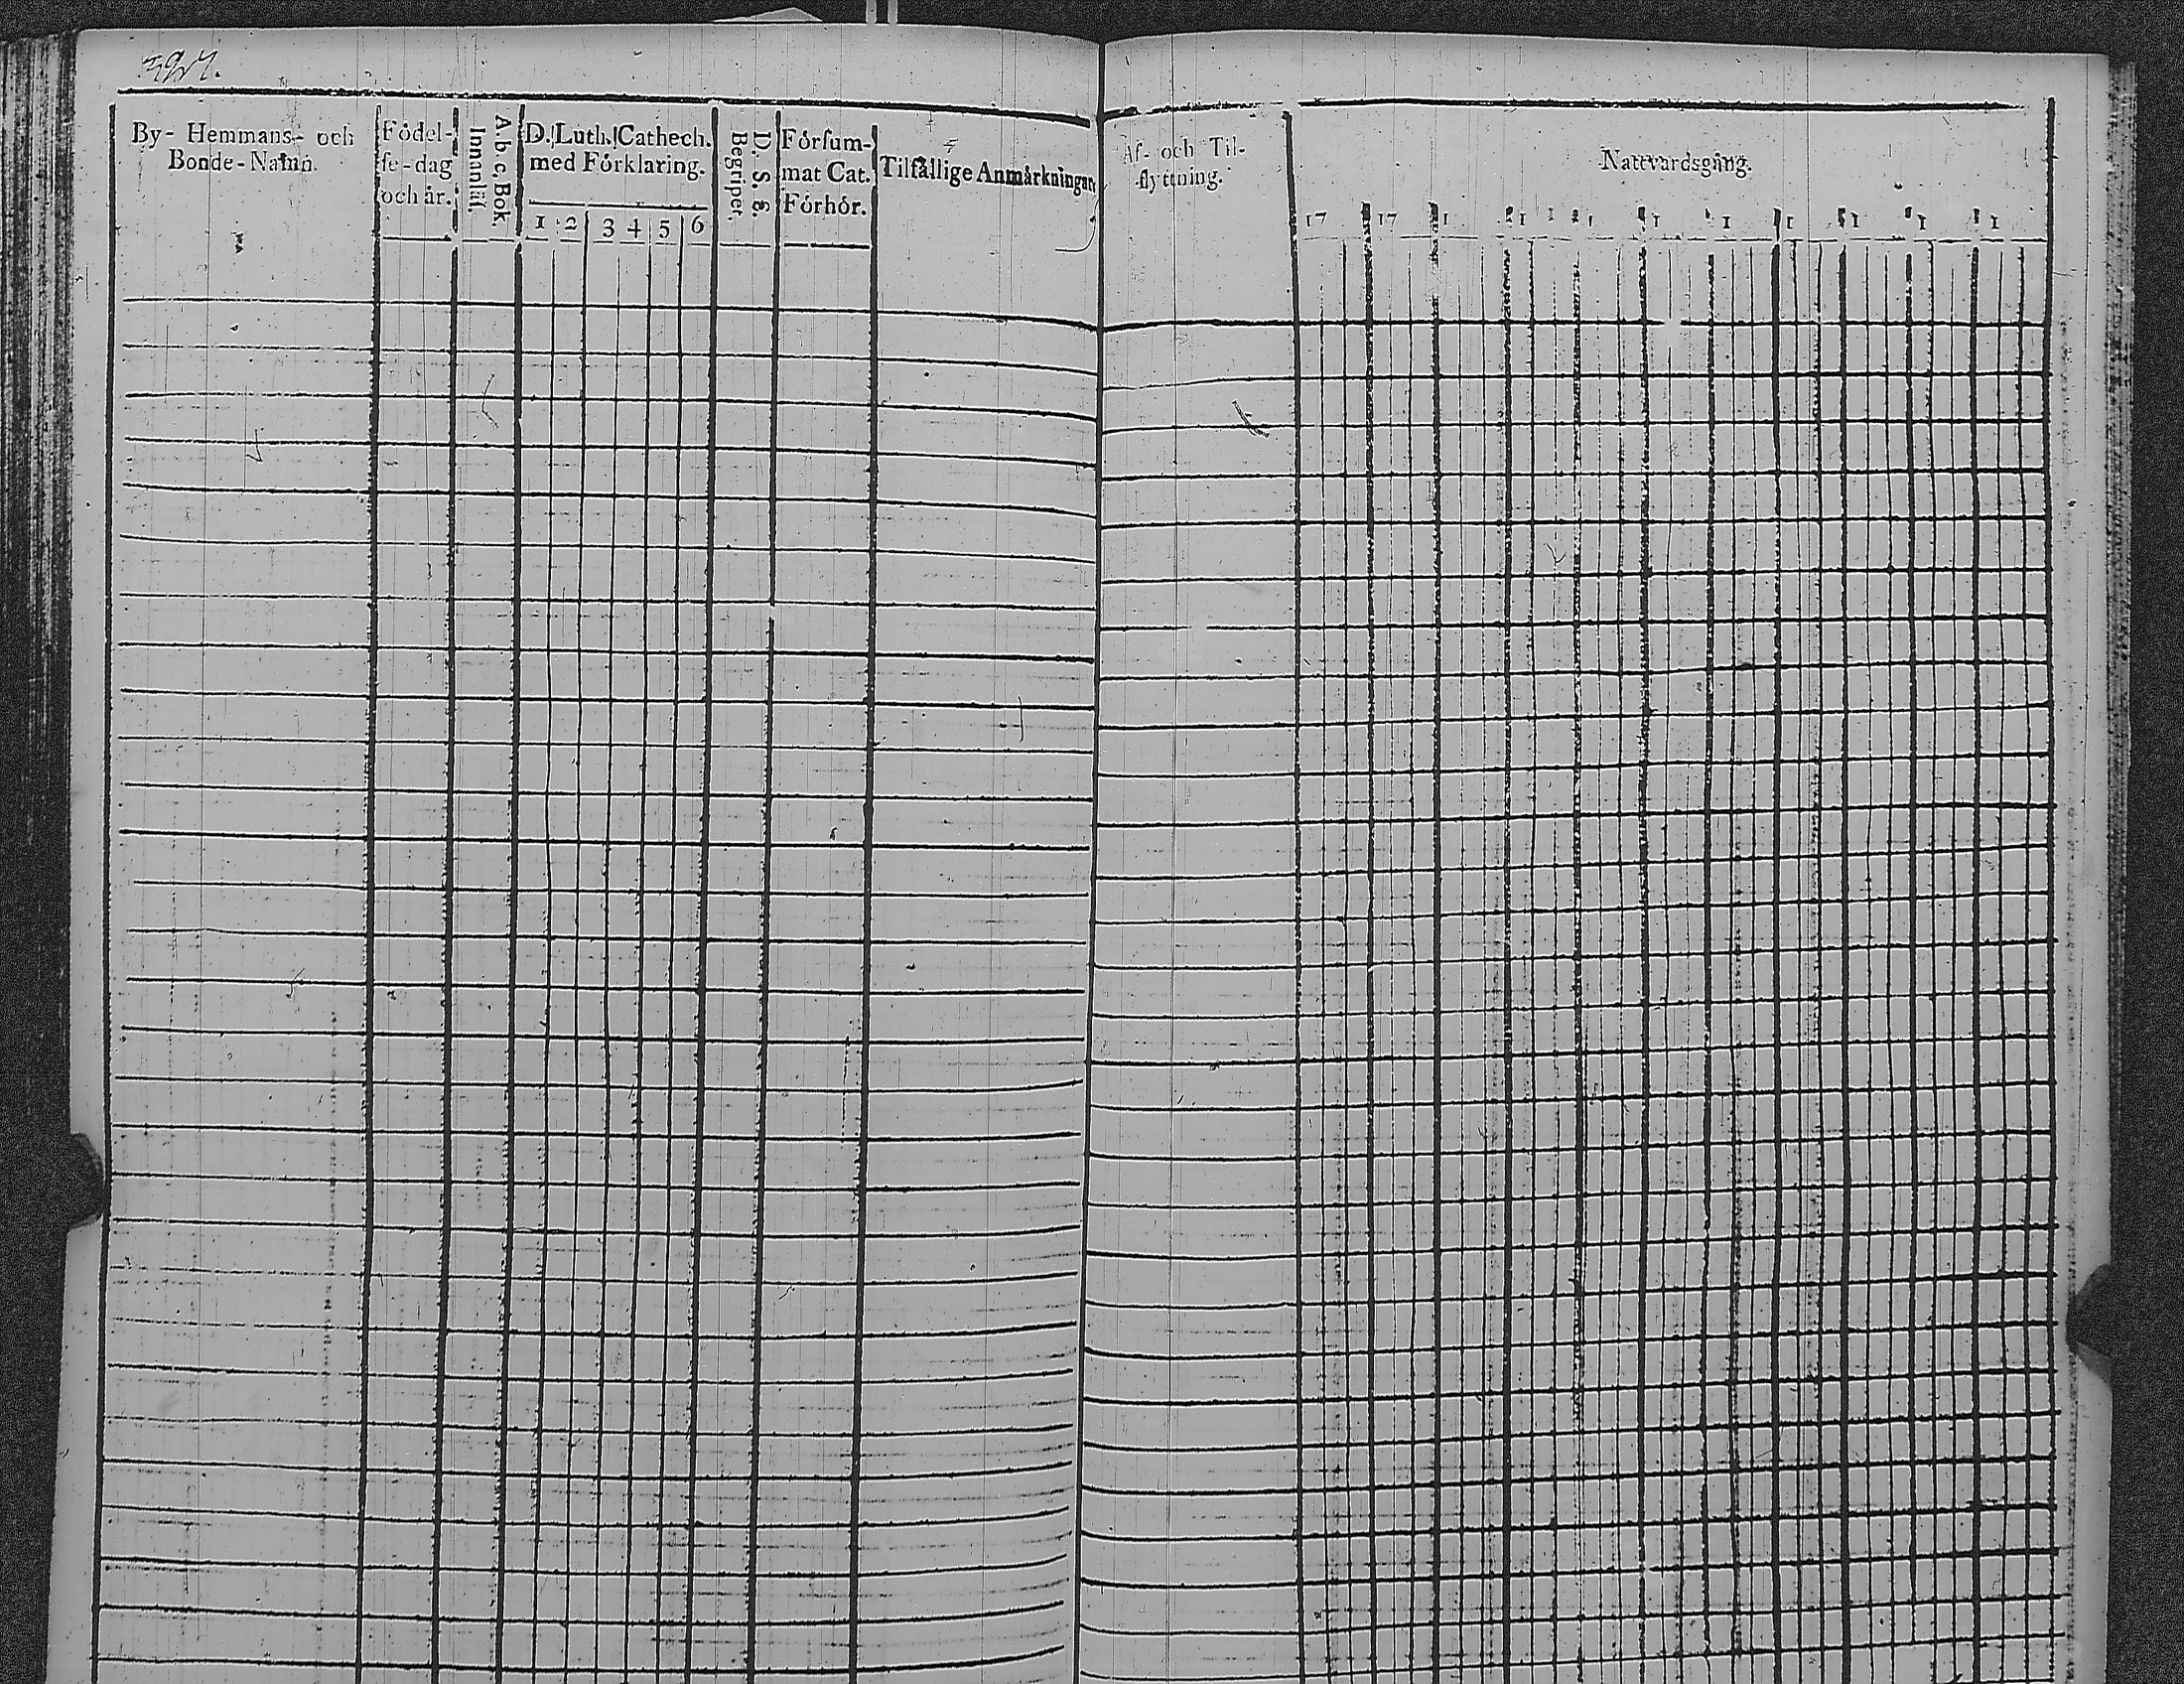 By- Hemmans- och
Bonde-Namn.
Födel-
se-dag
och år.
A b c, Bok.
Innanläs.
D. Luth. Cathech.
med Förklaring.
1 2 3 4 5 6
D. S. &.
Begriper.
Försum-
mat Cat.
Förhör.
Tilfällige Anmärkningar.
Af- och Til-
flyttning.
Nattvardsgång.
17 17 1 1 1 1 1 1 1 1 1